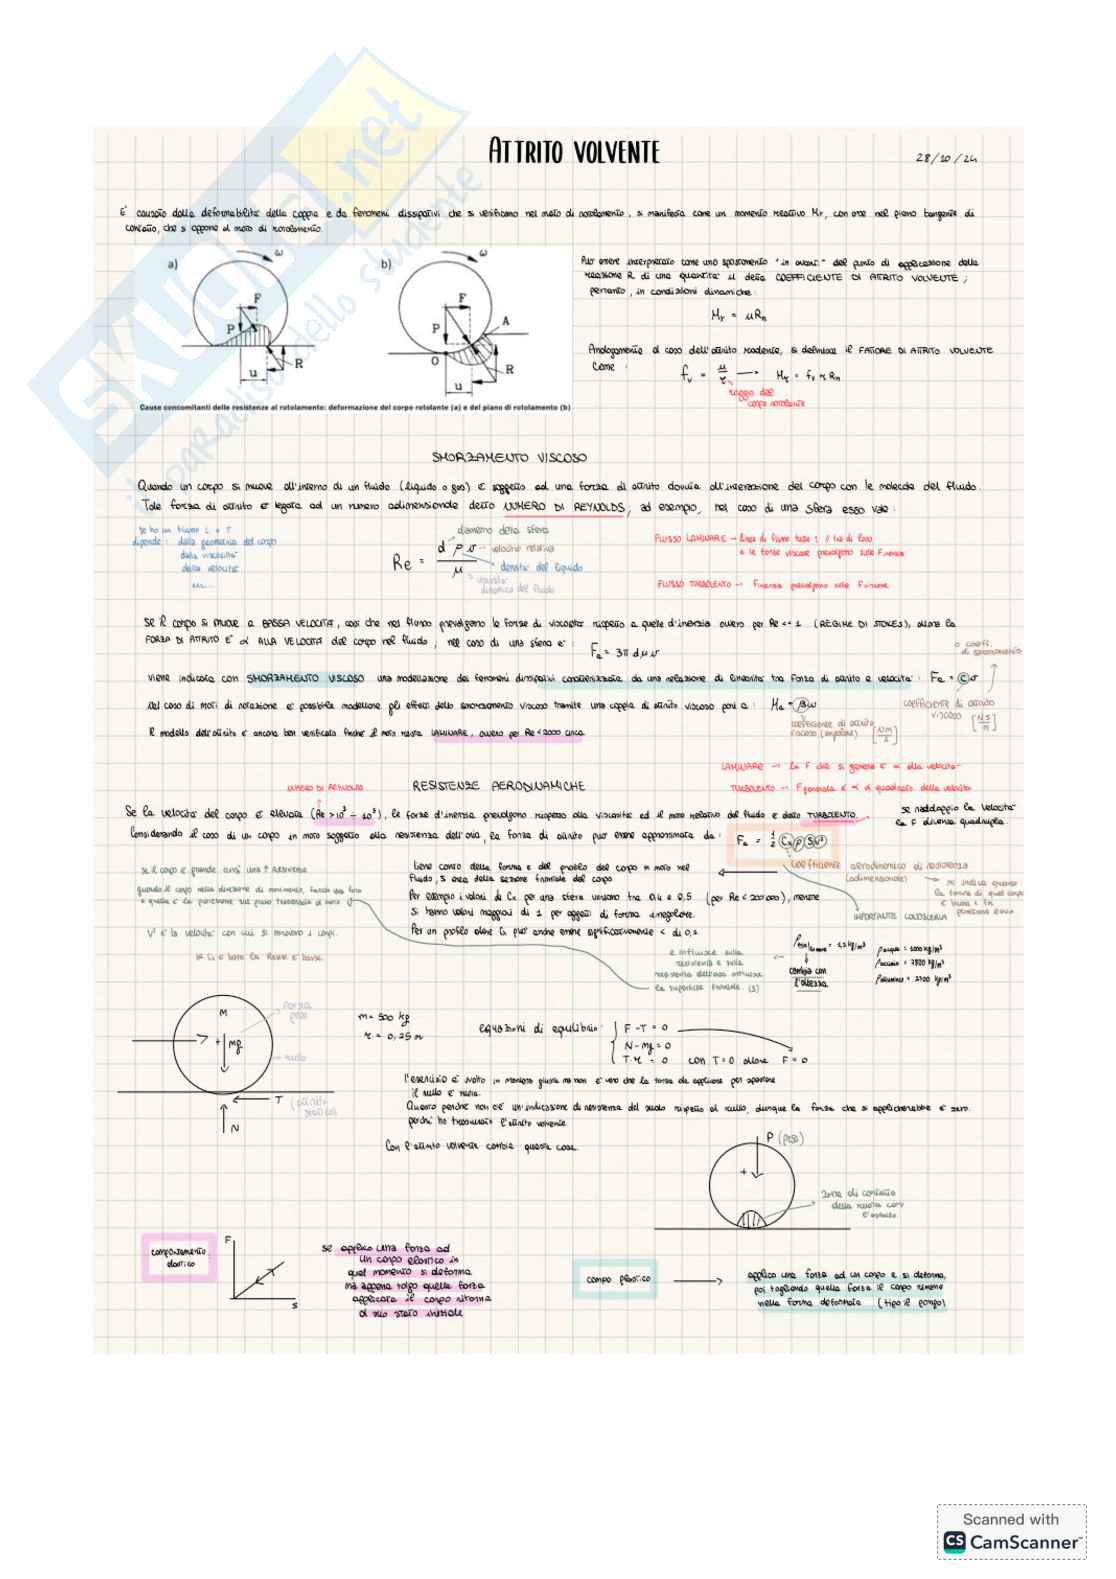 ATTRITO VOLVENTE
28/10/24
E' causato dalla deformabilità della coppia e da fenomeni dissipativi che si verificano nel moto di rotolamento, si manifesta come un momento reattivo Mr, con asse nel piano tangente di
contatto, che si oppone al moto di rotolamento.
a) ω F P R u
b) ω F P A O R u
Cause concomitanti delle resistenze al rotolamento: deformazione del corpo rotolante (a) e del piano di rotolamento (b)
Può essere interpretato come uno spostamento "in avanti" del punto di applicazione della
reazione R di una quantità u detta COEFFICIENTE DI ATTRITO VOLVENTE;
pertanto, in condizioni dinamiche:
Mr = uRn
Analogamente al caso dell'attrito radente, si definisce il FATTORE DI ATTRITO VOLVENTE
come:
fv = u/r → Mr = fv r Rn
raggio del
corpo rotolante
SMORZAMENTO VISCOSO
Quando un corpo si muove all'interno di un fluido (liquido o gas) è soggetto ad una forza di attrito dovuta all'interazione del corpo con le molecole del fluido.
Tale forza di attrito è legata ad un numero adimensionale detto NUMERO DI REYNOLDS, ad esempio, nel caso di una sfera esso vale:
dipende: dalla geometria del corpo
dalla viscosità
dalla velocità
ecc...
Re = d ρ v / μ
diametro della sfera
velocità relativa
densità del liquido
viscosità
dinamica del fluido
FLUSSO LAMINARE → linee di flusso tutte // tra di loro
e le forze viscose prevalgono sulle F inerzia
FLUSSO TURBOLENTO → F inerzia prevalgono sulle F viscose
Se il corpo si muove a BASSA VELOCITÀ, così che nel flusso prevalgono le forze di viscosità rispetto a quelle d'inerzia ovvero per Re << 1 (REGIME DI STOKES), allora la
FORZA DI ATTRITO E' ∝ ALLA VELOCITÀ del corpo nel fluido, nel caso di una sfera è: Fa = 3π d μ v
o coeff.
di smorzamento
Viene indicata con SMORZAMENTO VISCOSO una modellazione dei fenomeni dissipativi caratterizzata da una relazione di linearità tra forza di attrito e velocità: Fa = c v
coefficiente di attrito
viscoso [Ns/m]
Nel caso di moti di rotazione è possibile modellare gli effetti dello smorzamento viscoso tramite una coppia di attrito viscoso pari a: Ma = βω
coefficiente di attrito
viscoso (angolare) [Nm/s]
Il modello dell'attrito è ancora ben verificato finché il moto resta LAMINARE, ovvero per Re < 2000 circa.
LAMINARE → La F che si genera è ∝ alla velocità
TURBOLENTO → F generata è ∝ al quadrato della velocità
RESISTENZE AERODINAMICHE
NUMERO DI REYNOLDS
Se la velocità del corpo è elevata (Re > 10³ ÷ 10⁵), le forze d'inerzia prevalgono rispetto alla viscosità ed il moto relativo del fluido è detto TURBOLENTO.
se raddoppio la velocità
la F diventa quadrupla
Considerando il caso di un corpo in moto soggetto alla resistenza dell'aria, la forza di attrito può essere approssimata da: Fa = ½ Cx ρ S v²
coefficiente aerodinamico di resistenza
(adimensionale)
mi indica quanto
la forma di quel corpo
è buona x la
IMPORTANTE CONOSCERLA
se il corpo è grande avrò una ↑ RESISTENZA
V² è la velocità con cui si muovono i corpi.
se Cx è basso la RESIS è bassa.
tiene conto della forma e del profilo del corpo in moto nel
fluido, S area della sezione frontale del corpo
Per esempio i valori di Cx per una sfera variano tra 0,4 e 0,5 (per Re < 200'000), mentre
si hanno valori maggiori di 1 per oggetti di forma irregolare.
Per un profilo alare Cx può anche essere significativamente < di 0,1.
e influisce sulla
resistenza e sulla
la superficie frontale (S)
= 1,2 kg/m³
cambia con
l'altezza
ρ acqua = 1000 kg/m³
ρ acciaio = 7800 kg/m³
ρ alluminio = 2700 kg/m³
M
mg
forza
peso
rullo
T (attrito
statico)
N
m = 500 kg
r = 0,25 m
equazioni di equilibrio
F - T = 0
N - mg = 0
T·r = 0 con T=0 allora F = 0
l'esercizio è svolto in maniera giusta ma non è vero che la forza da applicare per spostare
il rullo è nulla.
Questo perché non c'è un'indicazione di resistenza del suolo rispetto al rullo, dunque la forza che si applicherebbe è zero.
perché ho trascurato l'attrito volvente
Con l'attrito volvente cambia questa cosa.
P (peso)
zona di contatto
della ruota con
l'asfalto
comportamento
elastico
F
s
se applico una forza ad
un corpo elastico in
quel momento si deforma
ma appena tolgo quella forza
applicata il corpo ritorna
al suo stato iniziale
corpo plastico
applico una forza ad un corpo e si deforma,
poi togliendo quella forza il corpo rimane
nella forma deformata (tipo il pongo)
SKUOLA.net
il paradiso dello studente
Scanned with
CS CamScanner